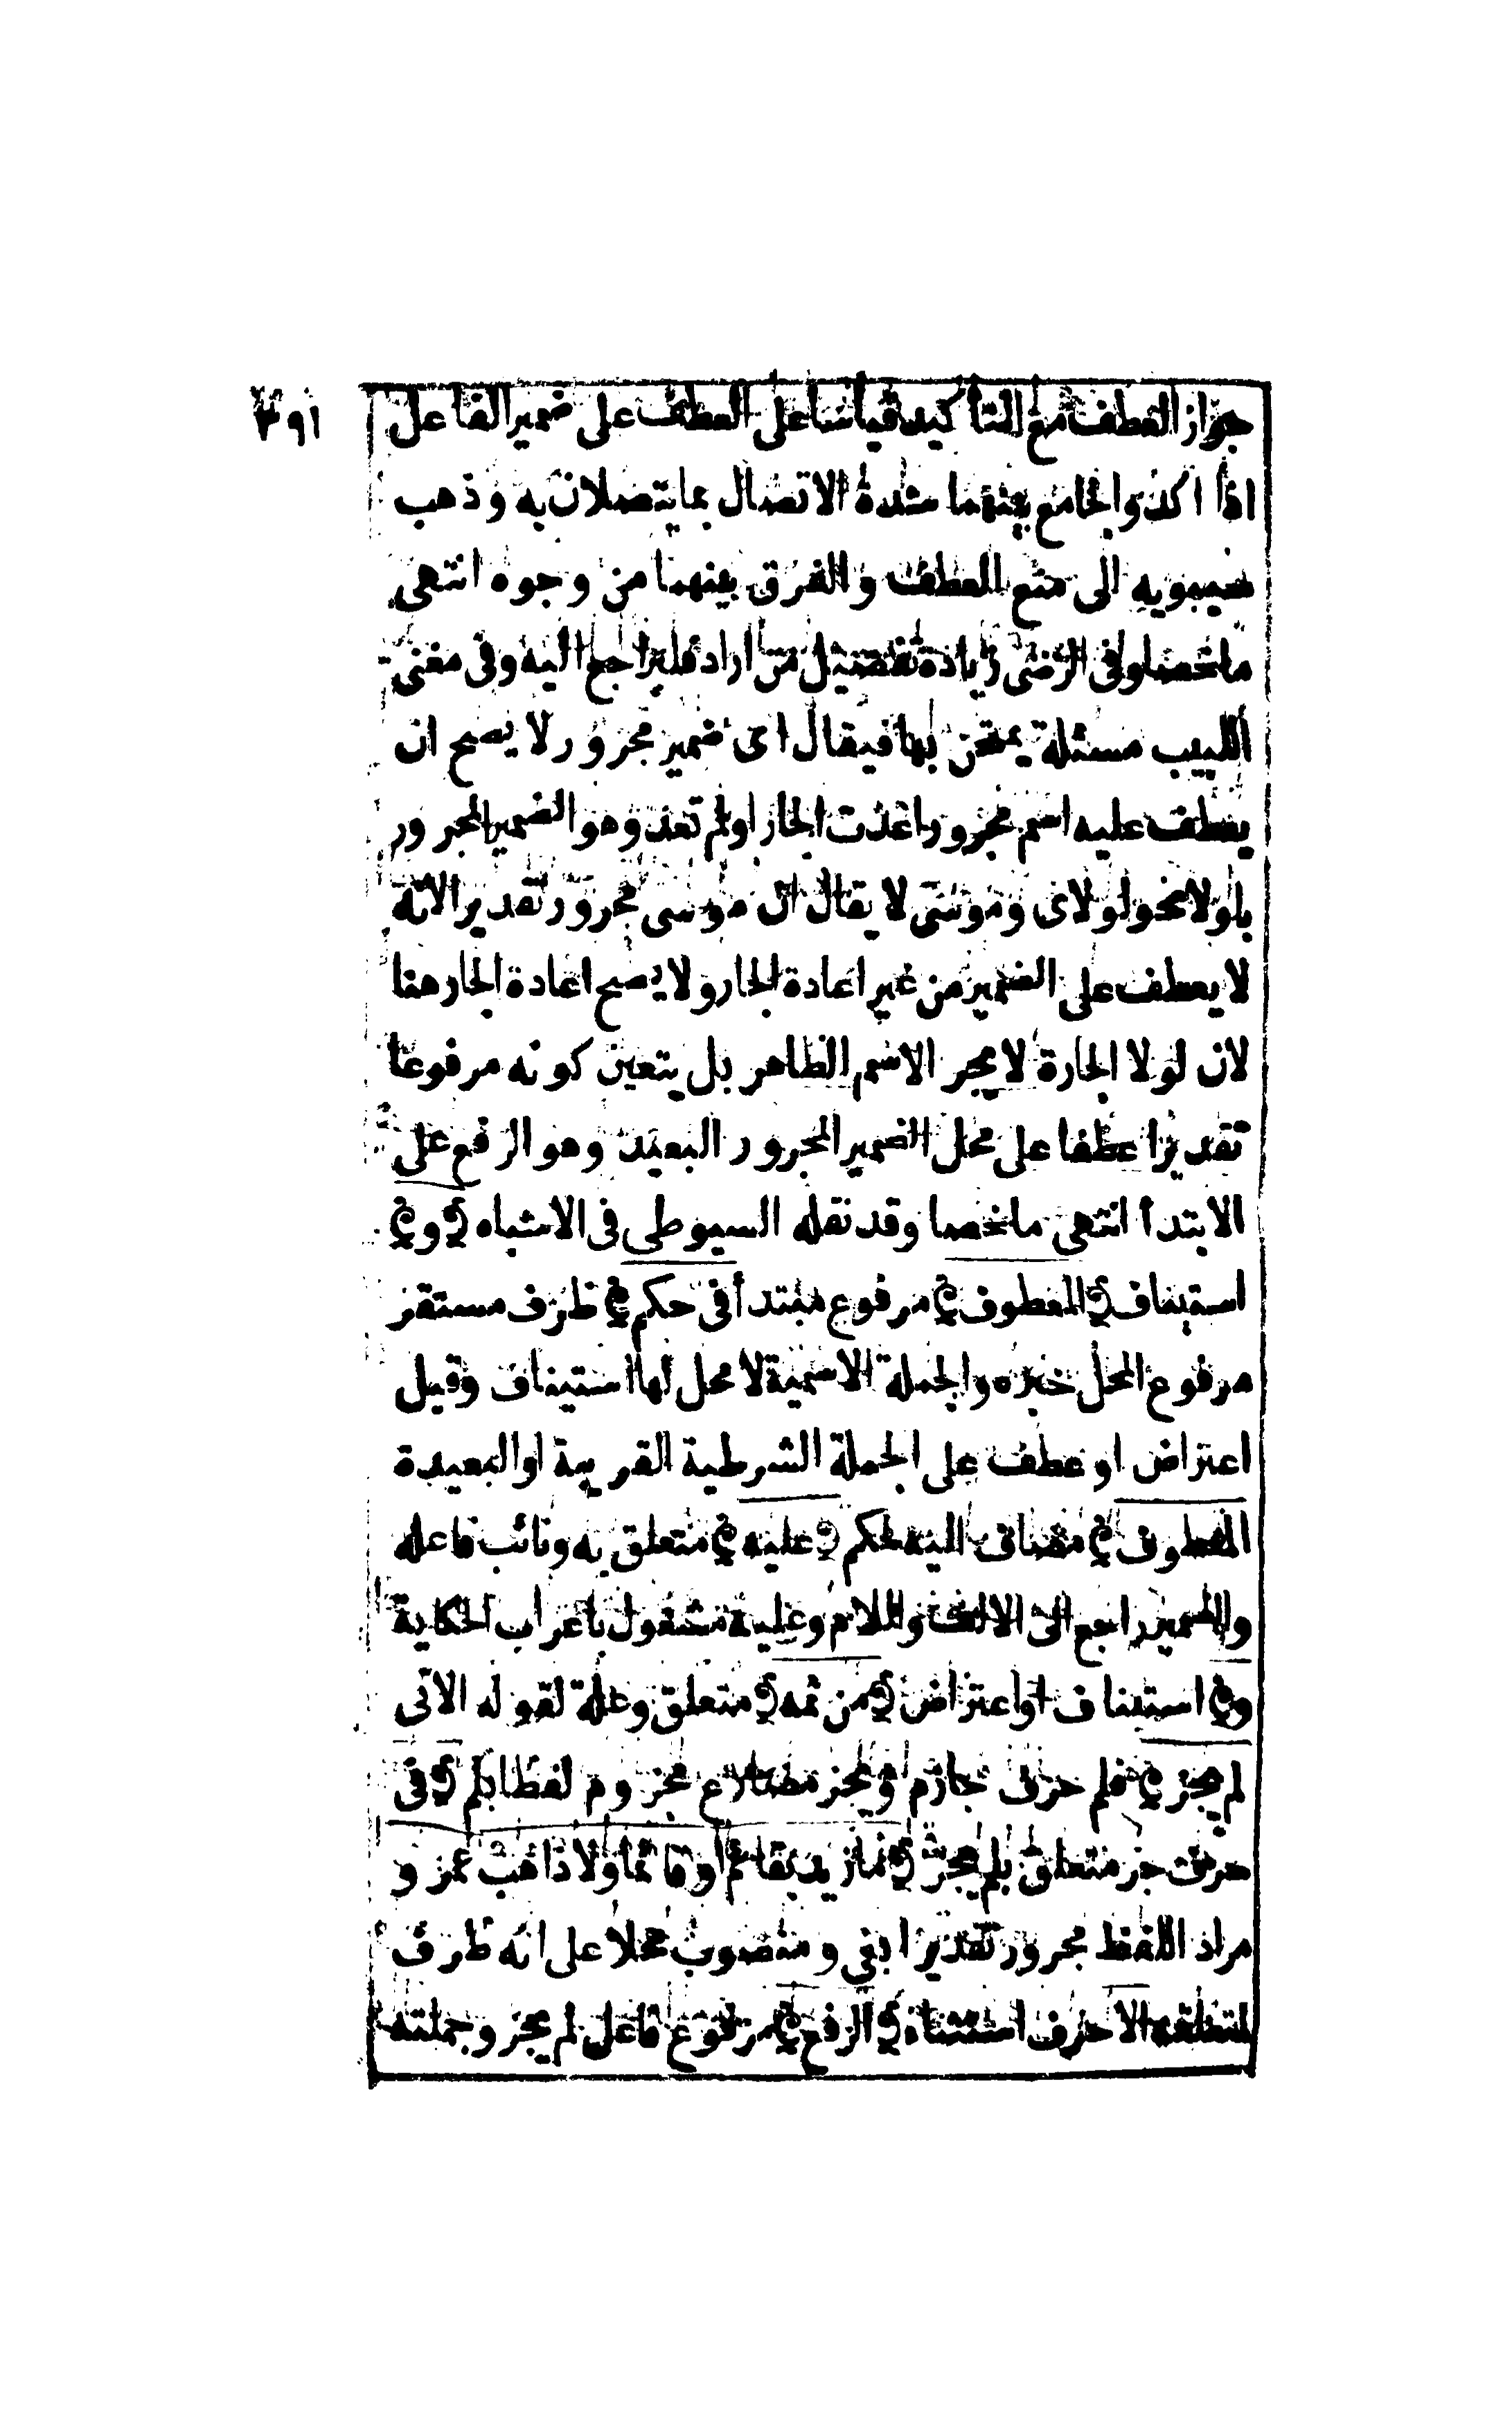 ٣٩١
جواز العطف مع التأكيد قياسا على العطف على ضمير الفاعل
اذا اكد والجامع بينهما شدة الاتصال بما يتصلان به وذهب
سيبويه الى منع العطف والفرق بينهما من وجوه انتهى
ملخصا وفى الرضى زيادة تفصيل من اراد فليراجع اليه وفى مغنى
اللبيب مسئلة يمتحن بها فيقال اى ضمير مجرور لا يصح ان
يعطف عليه اسم مجرور اعدت الجار او لم تعد وهو الضمير المجرور
بلولا نحو لولاى وموسى لا يقال ان موسى مجرور تقديرا لانه
لا يعطف على الضمير من غير اعادة الجار ولا يصح اعادة الجار هنا
لان لولا الجارة لا يجر الاسم الظاهر بل يتعين كونه مرفوعا
تقديرا عطفا على محل الضمير المجرور البعيد وهو الرفع على
الابتدأ انتهى ملخصا وقد نقله السيوطى فى الاشباه ﴿و﴾
استيناف ﴿المعطوف﴾ مرفوع مبتدأ فى حكم ﴾ ظرف مستقر
مرفوع المحل خبره والجملة الاسمية لا محل لها استيناف وقيل
اعتراض او عطف على الجملة الشرطية القريبة او البعيدة
المعطوف ﴾ مضاف اليه لحكم ﴿عليه﴾ متعلق به ونائب فاعله
والضمير راجع الى الالف واللام وعليه مشغول باعراب الحكاية
و﴾ استيناف او اعتراض ﴿من ثمه﴾ متعلق وعلة لقوله الاتى
لم يجز ﴾ فلم حرف جازم ويجز مضارع مجزوم لفظا بلم ﴿فى
حرف جر متعلق بلم يجز ﴿ما زيد بقائم او قائما ولا ذاهب عمرو
مراد اللفظ مجرور تقديرا بفى ومنصوب محلا على انه ظرف
لمتعلقه الا حرف استثناء ﴿الرفع﴾ مرفوع فاعل لم يجز وجملته